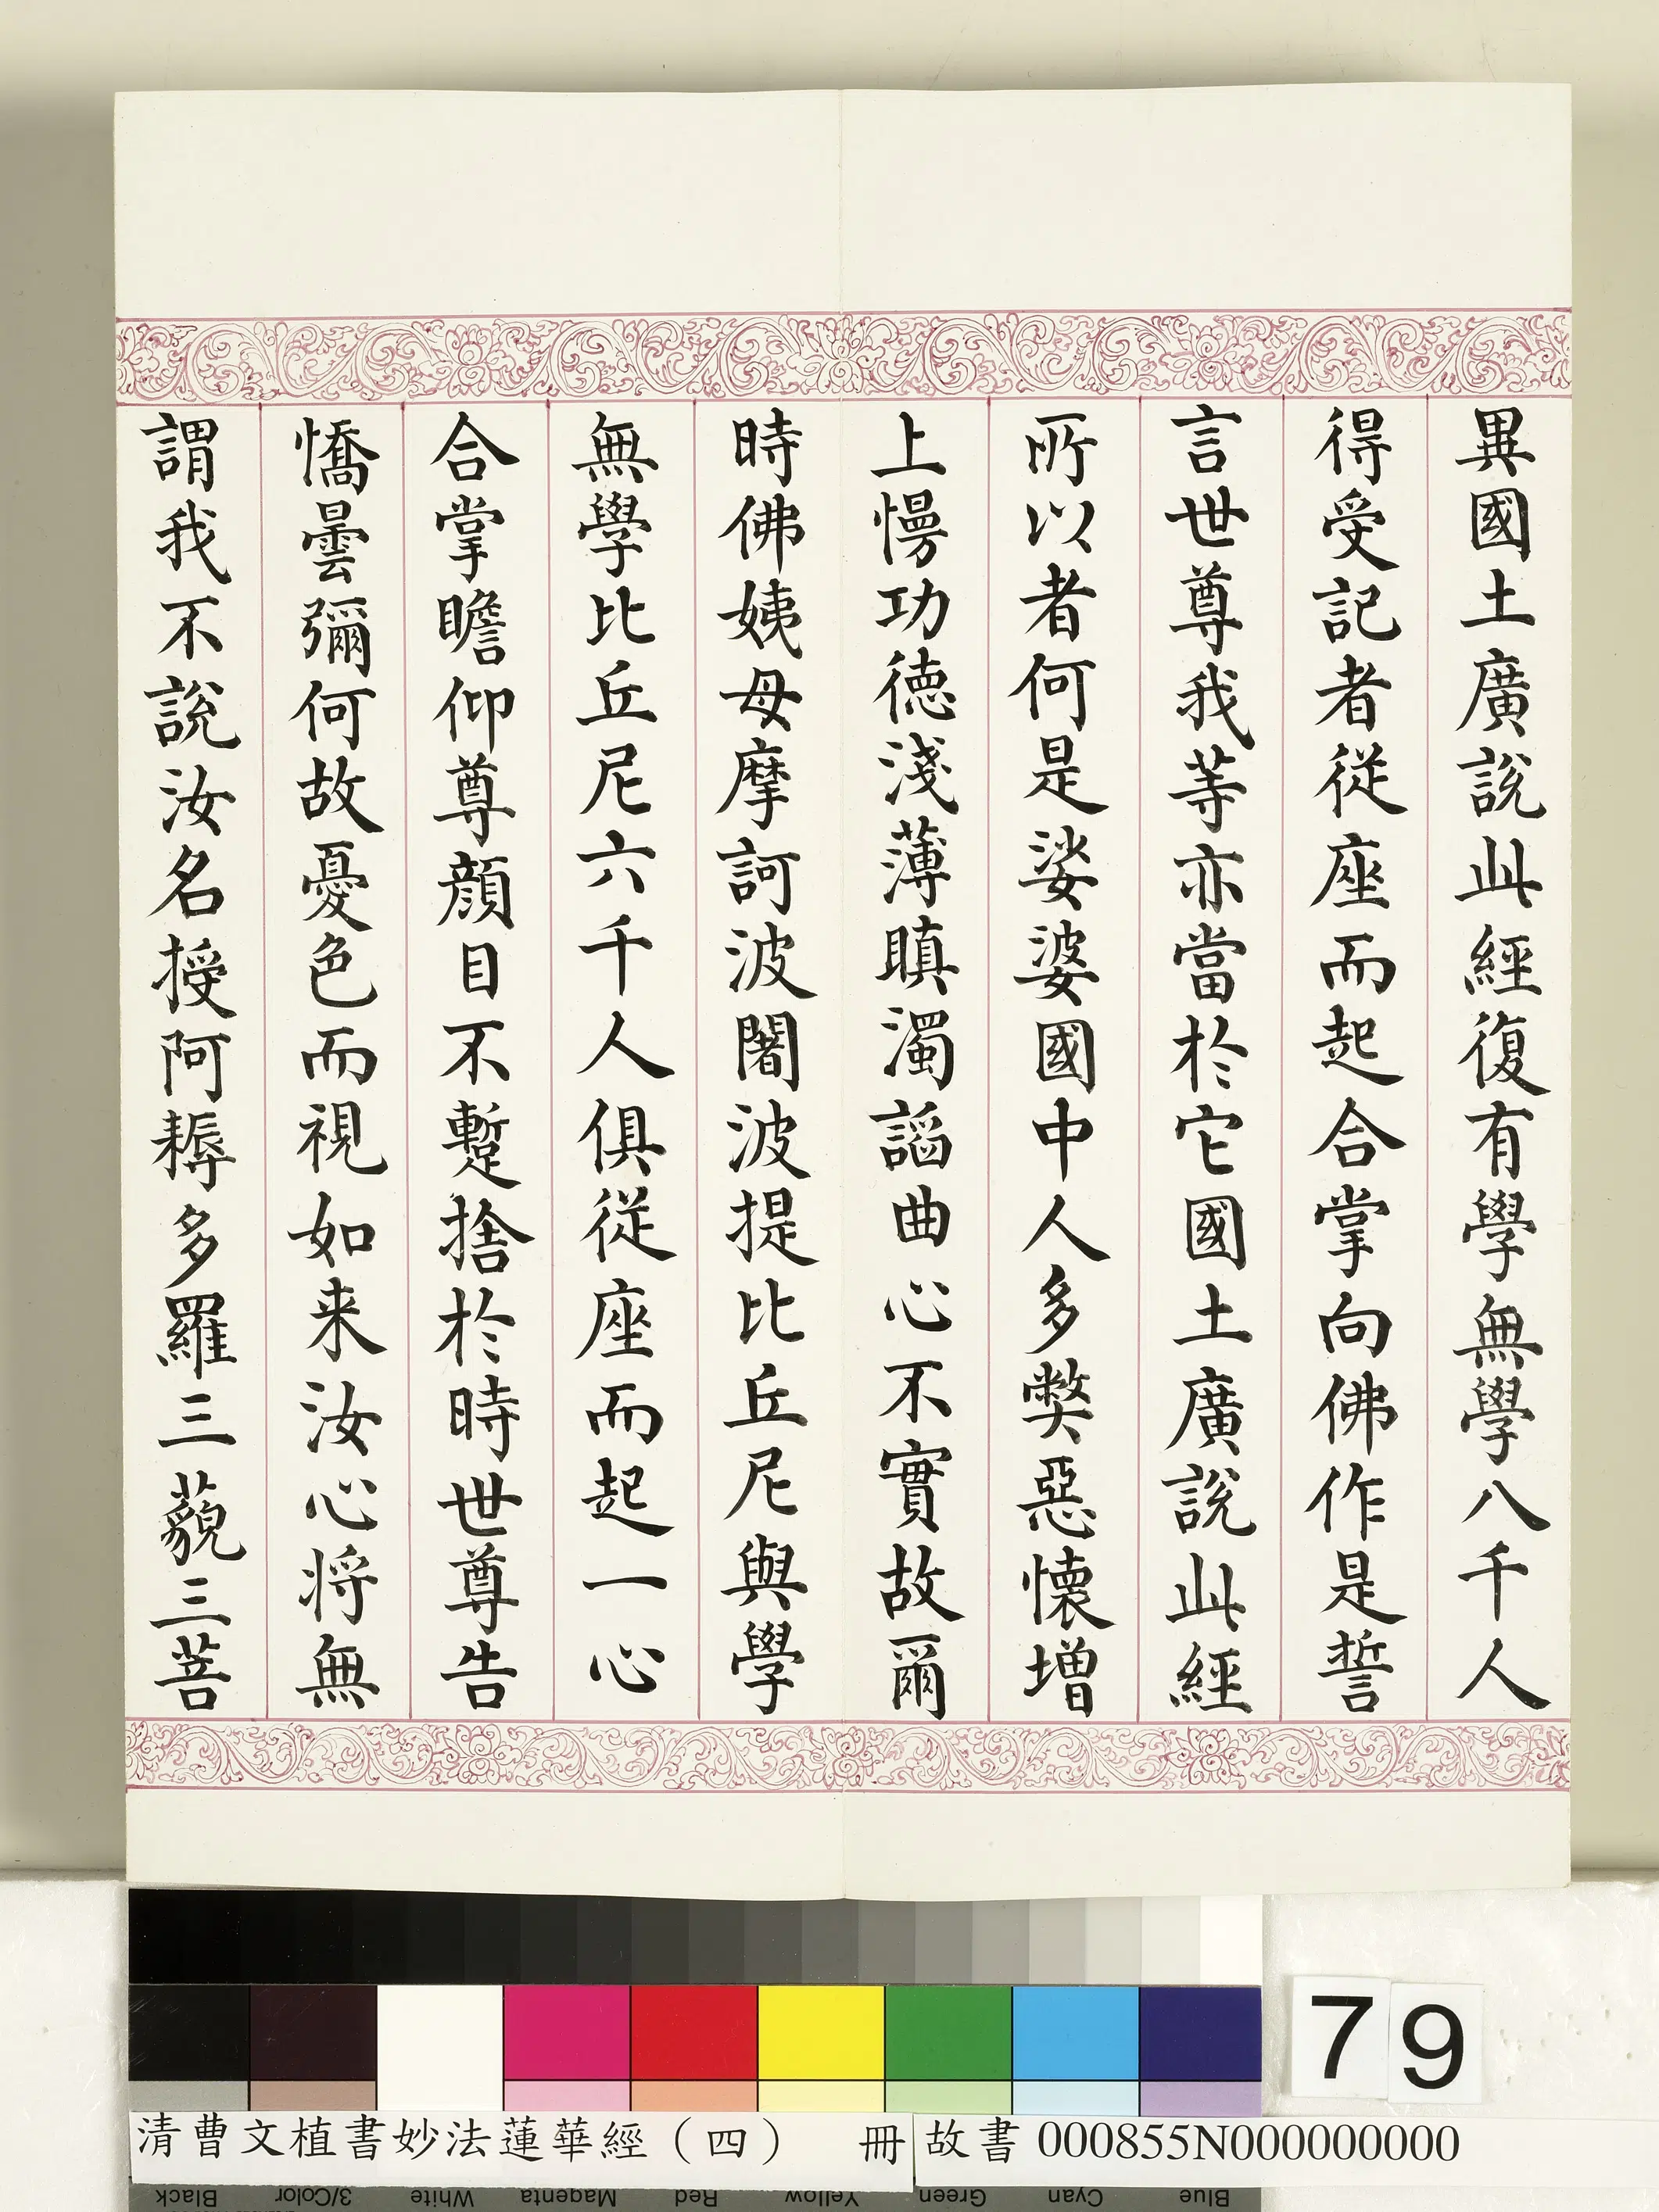 異國土廣說此經復有學無學八千人
得受記者從座而起合掌向佛作是誓
言世尊我等亦當於它國土廣說此經
所以者何是娑婆國中人多獘惡懷增
上慢功德淺薄瞋濁諂曲心不實故爾
時佛姨母摩訶波闍波提比丘尼與學
無學比丘尼六千人俱從座而起一心
合掌瞻仰尊顏目不蹔捨於時世尊告
憍曇彌何故憂色而視如来汝心将無
謂我不說汝名授阿耨多羅三藐三菩
79
清曹文植書妙法蓮華經（四） 冊 故書 000855N000000000
Black 3/Color White Magenta Red Yellow Green Cyan Blue